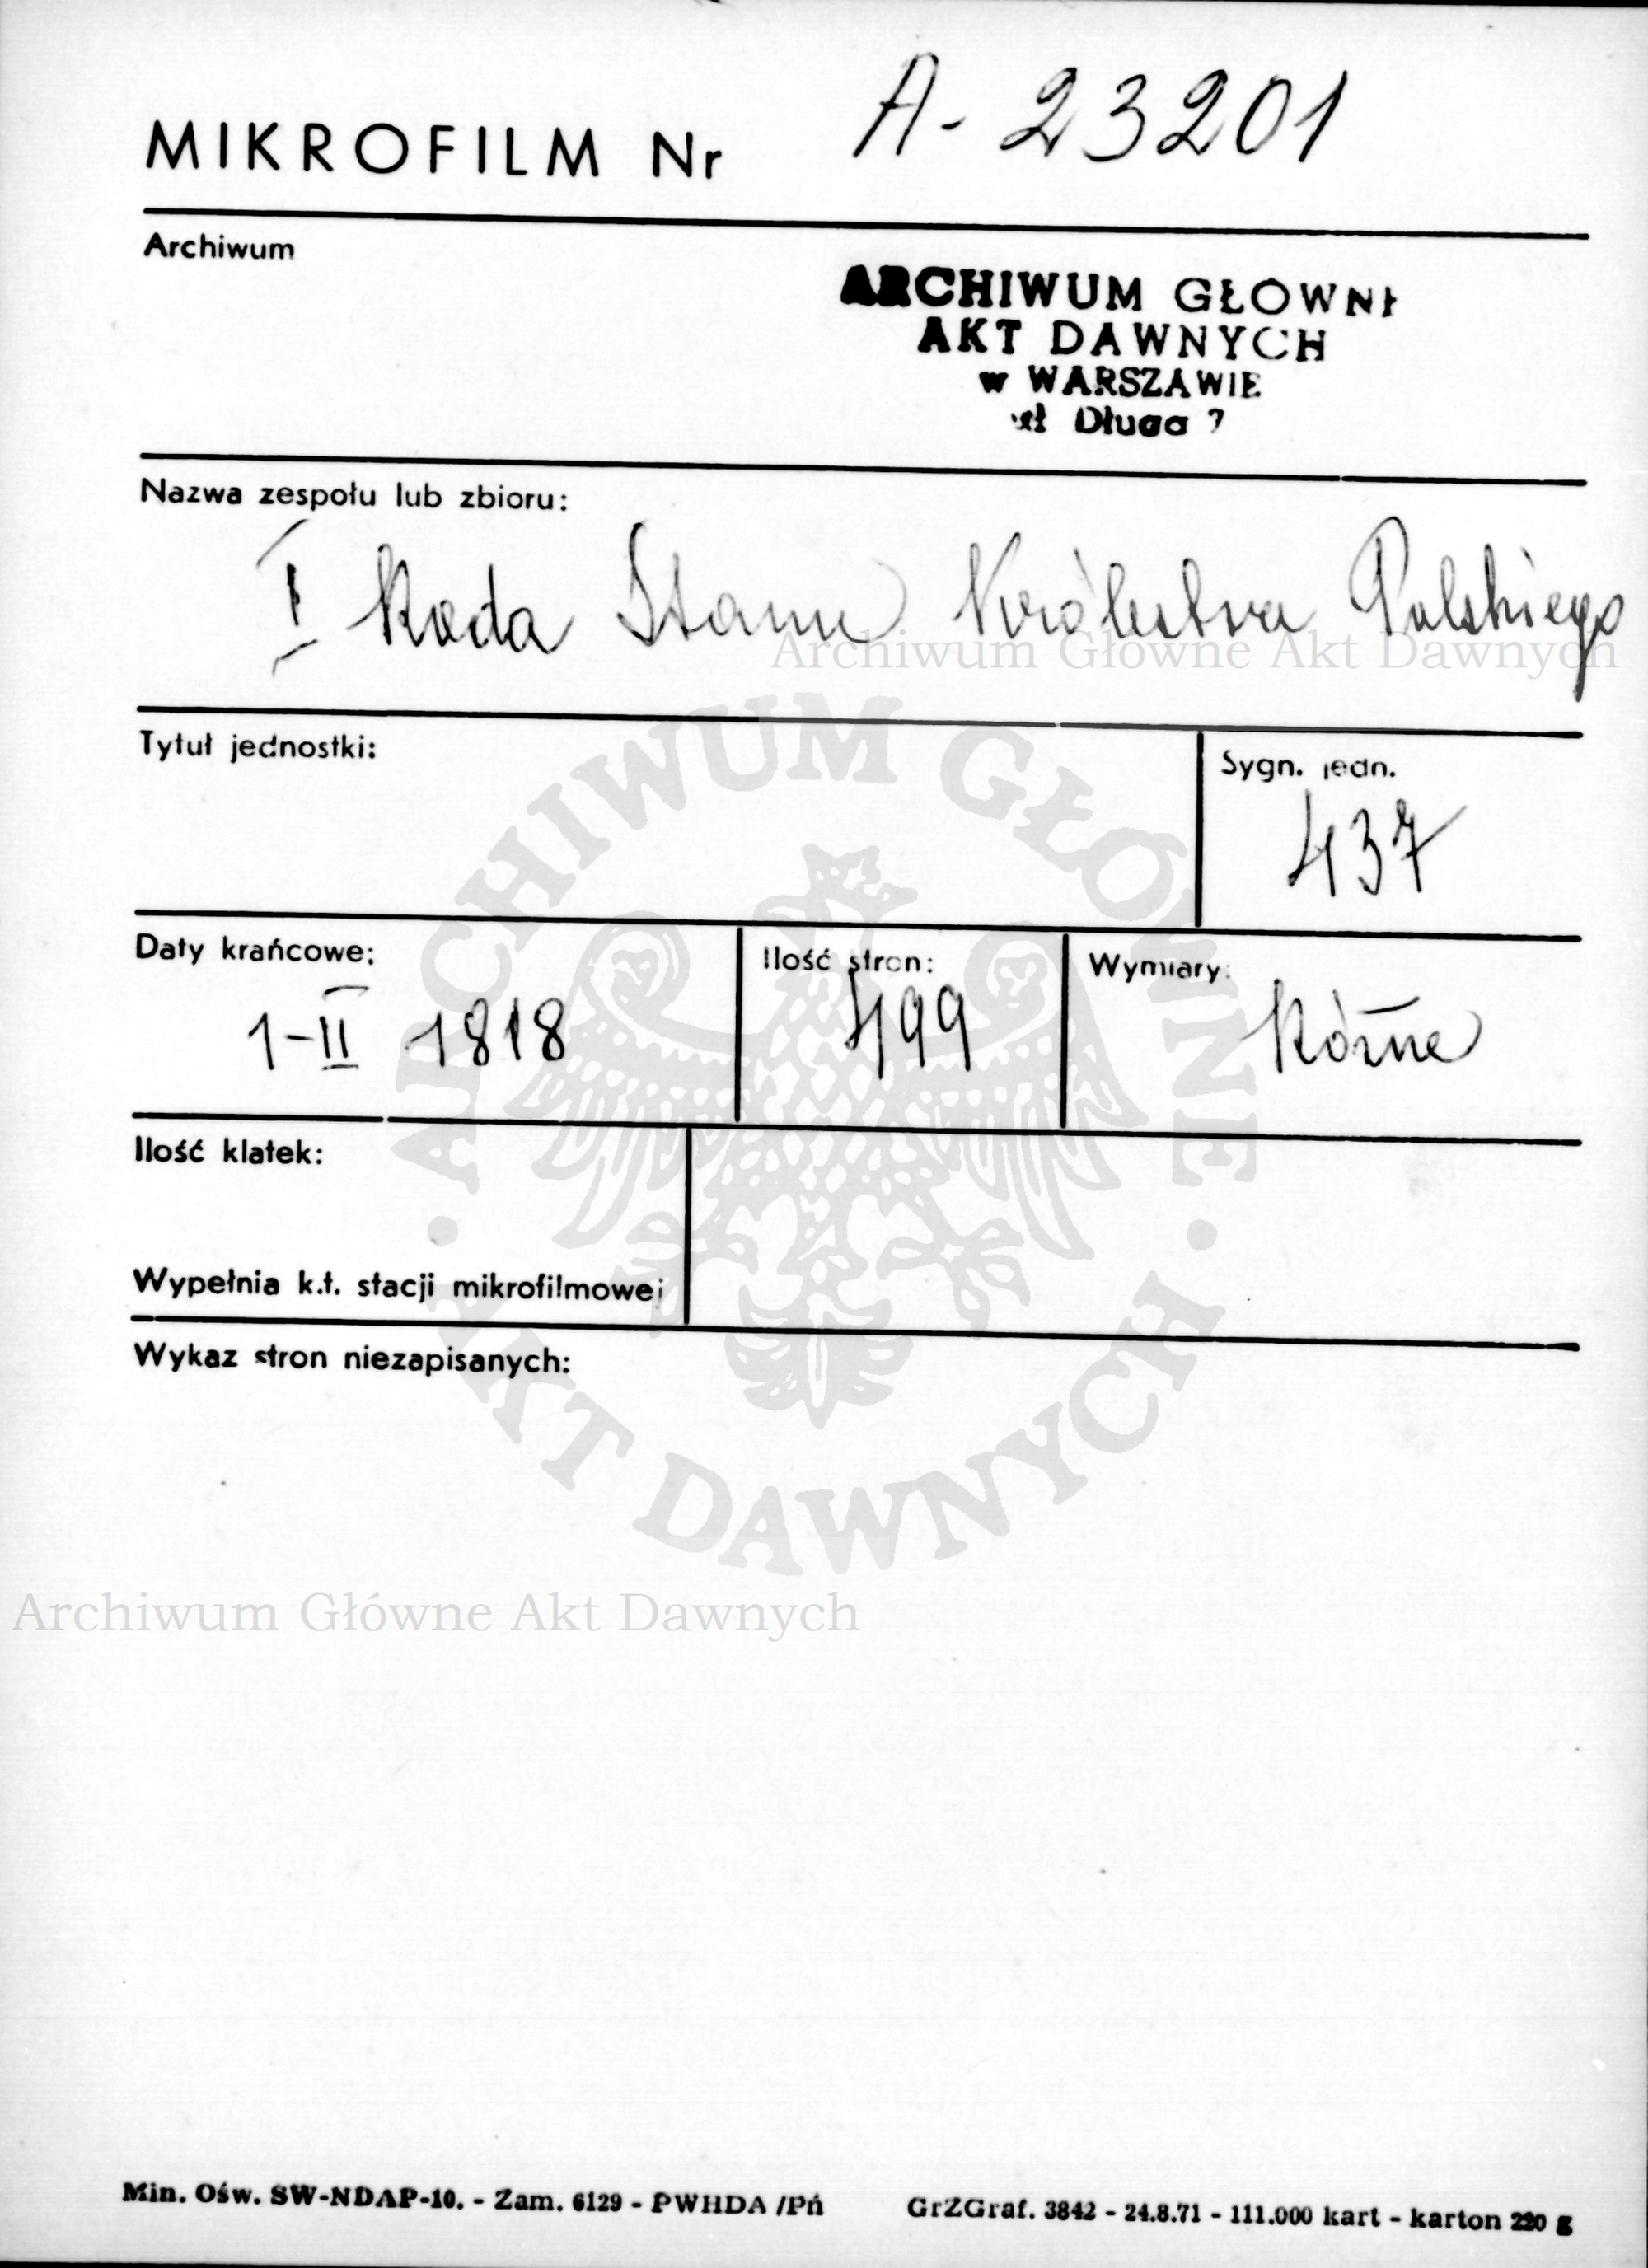 MIKROFILM Nr A-23201
Archiwum
ARCHIWUM GŁOWNE
AKT DAWNYCH
w WARSZAWIE
ul Długa 7
Nazwa zespołu lub zbioru:
I Rada Stanu Królestwa Polskiego
Archiwum Główne Akt Dawnych
Tytuł jednostki:
Sygn. jedn.
437
Daty krańcowe:
1-II 1818
Ilość stron:
499
Wymiary:
Różne
Ilość klatek:
Wypełnia k.t. stacji mikrofilmowej
Wykaz stron niezapisanych:
ARCHIWUM GŁÓWNE
· AKT DAWNYCH ·
Archiwum Główne Akt Dawnych
Min. Ośw. SW-NDAP-10. - Zam. 6129 - PWHDA /Pń GrZGraf. 3842 - 24.8.71 - 111.000 kart - karton 220 g